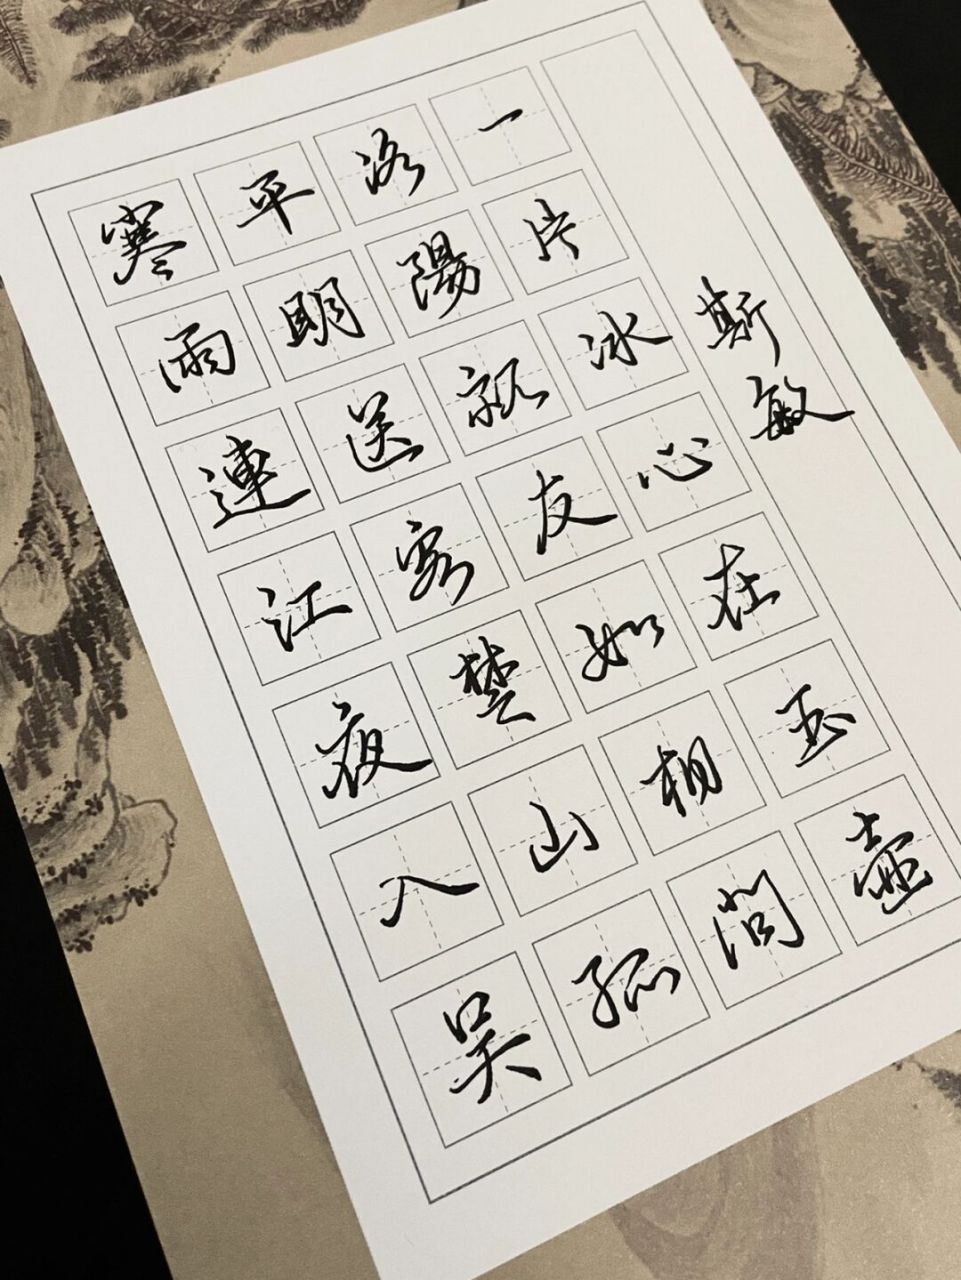 寒雨連江夜入吳
平明送客楚山孤
洛陽親友如相問
一片冰心在玉壺
斯敏